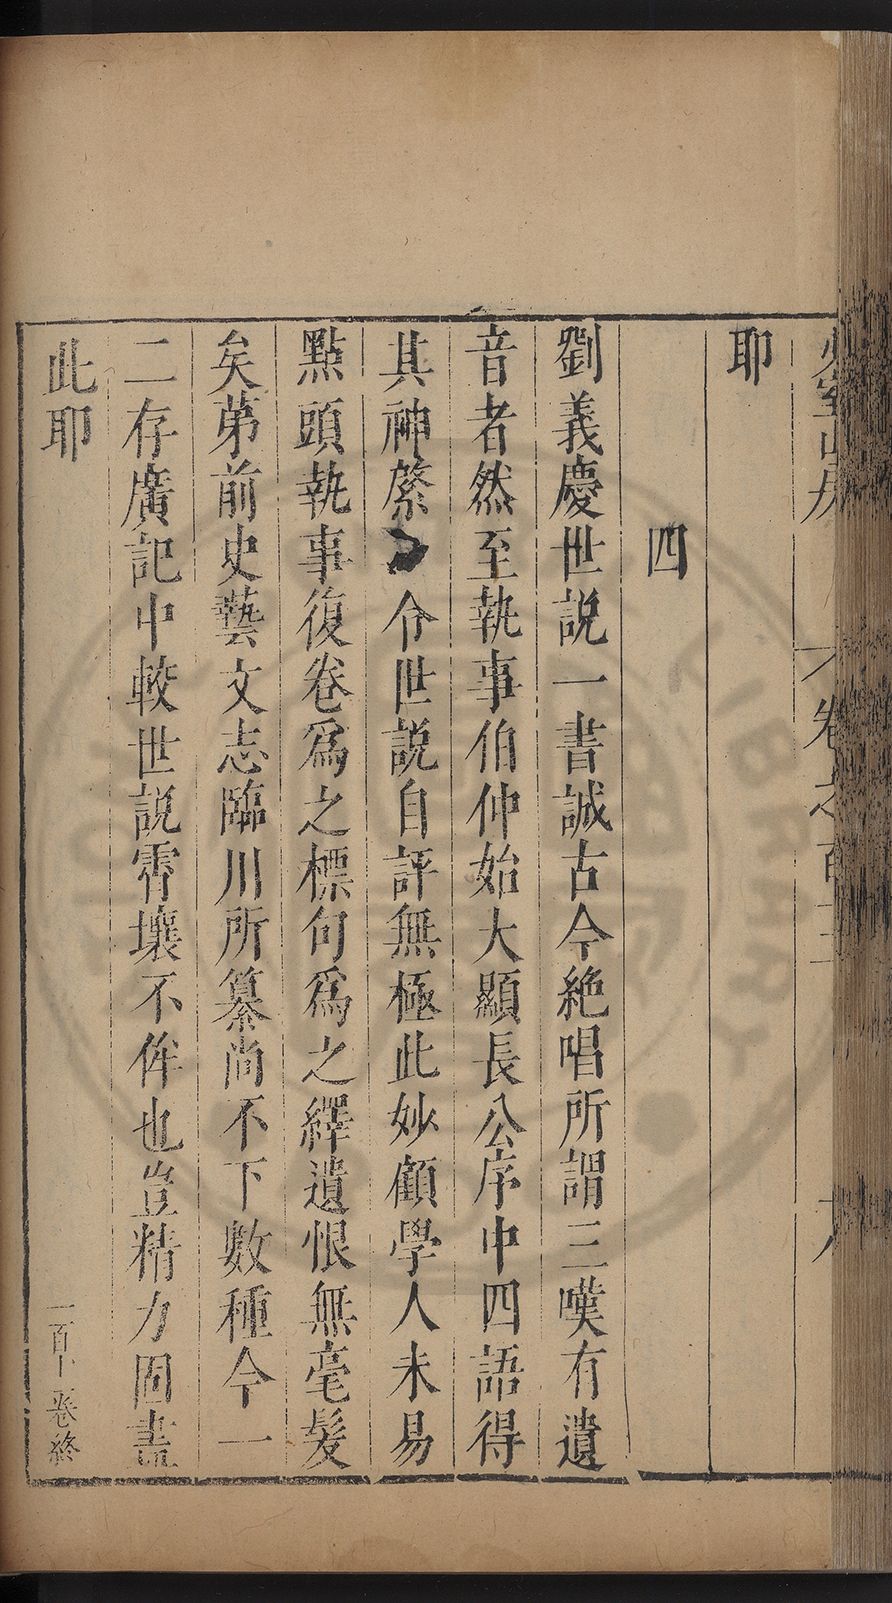 耶
四
劉義慶世説一書誠古今絶唱所謂三嘆有遺
音者然至執事伯仲始大顯長公序中四語得
其神綮令世説自評無極此妙顧學人未易
點頭執事復卷爲之標句爲之繹遺恨無毫髮
矣苐前史藝文志臨川所纂尚不下數種今一
二存廣記中較世説霄壤不侔也豈精力固盡
此耶
卷終